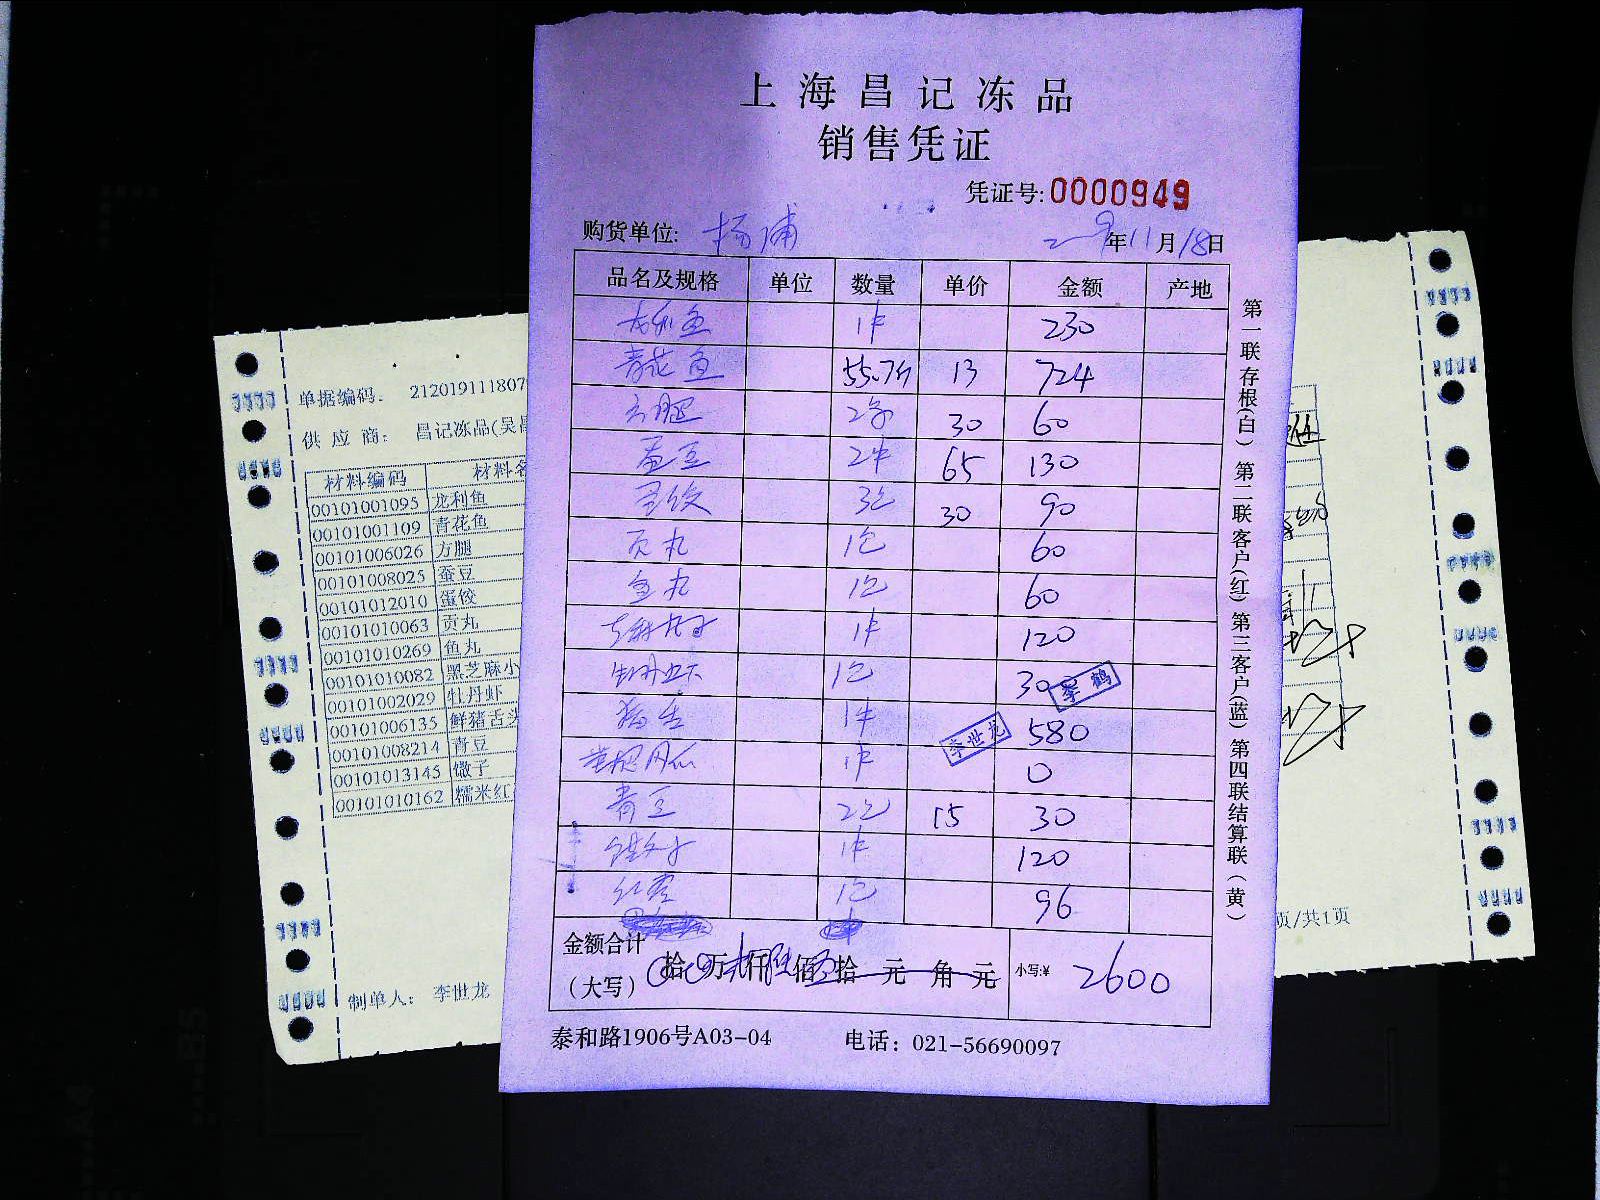 上海昌记冻品
销售凭证
凭证号:0000949
购货单位: 杨浦 年11月18日
品名及规格 单位 数量 单价 金额 产地
龙利鱼 1件 230
青花鱼 55.7斤 13 724
方腿 30 60
蚕豆 2件 65 130
蛋饺 3包 30 90
贡丸 1包 60
鱼丸 1包 60
1件 120
牡丹虾 1包 30
猪舌 1件 580
1件 0
青豆 2包 15 30
馓子 1件 120
红枣 1包 96
金额合计
(大写) 拾 万 仟 佰 拾 元 角 元 小写:¥ 2600
泰和路1906号A03-04 电话: 021-56690097
第一联存根(白) 第二联客户(红) 第三客户(蓝) 第四联结算联(黄)
李鹤
李世龙
单据编码: 212019111807
供应商: 昌记冻品(吴昌
材料编码 材料名
00101001095 龙利鱼
00101001109 青花鱼
00101006026 方腿
00101008025 蚕豆
00101012010 蛋饺
00101010063 贡丸
00101010269 鱼丸
00101010082 黑芝麻小
00101002029 牡丹虾
00101006135 鲜猪舌头
00101008214 青豆
00101013145 馓子
00101010162 糯米红
制单人: 李世龙
页/共1页